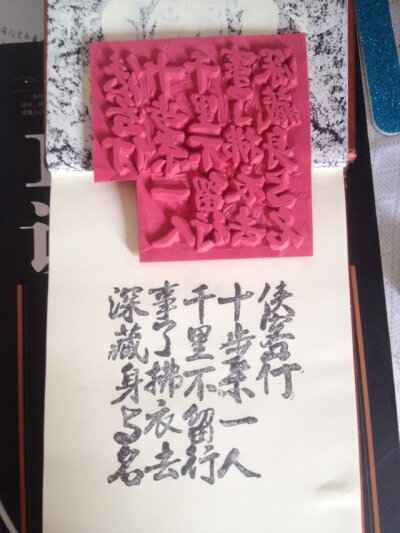 侠客行
十步杀一人
千里不留行
事了拂衣去
深藏身与名